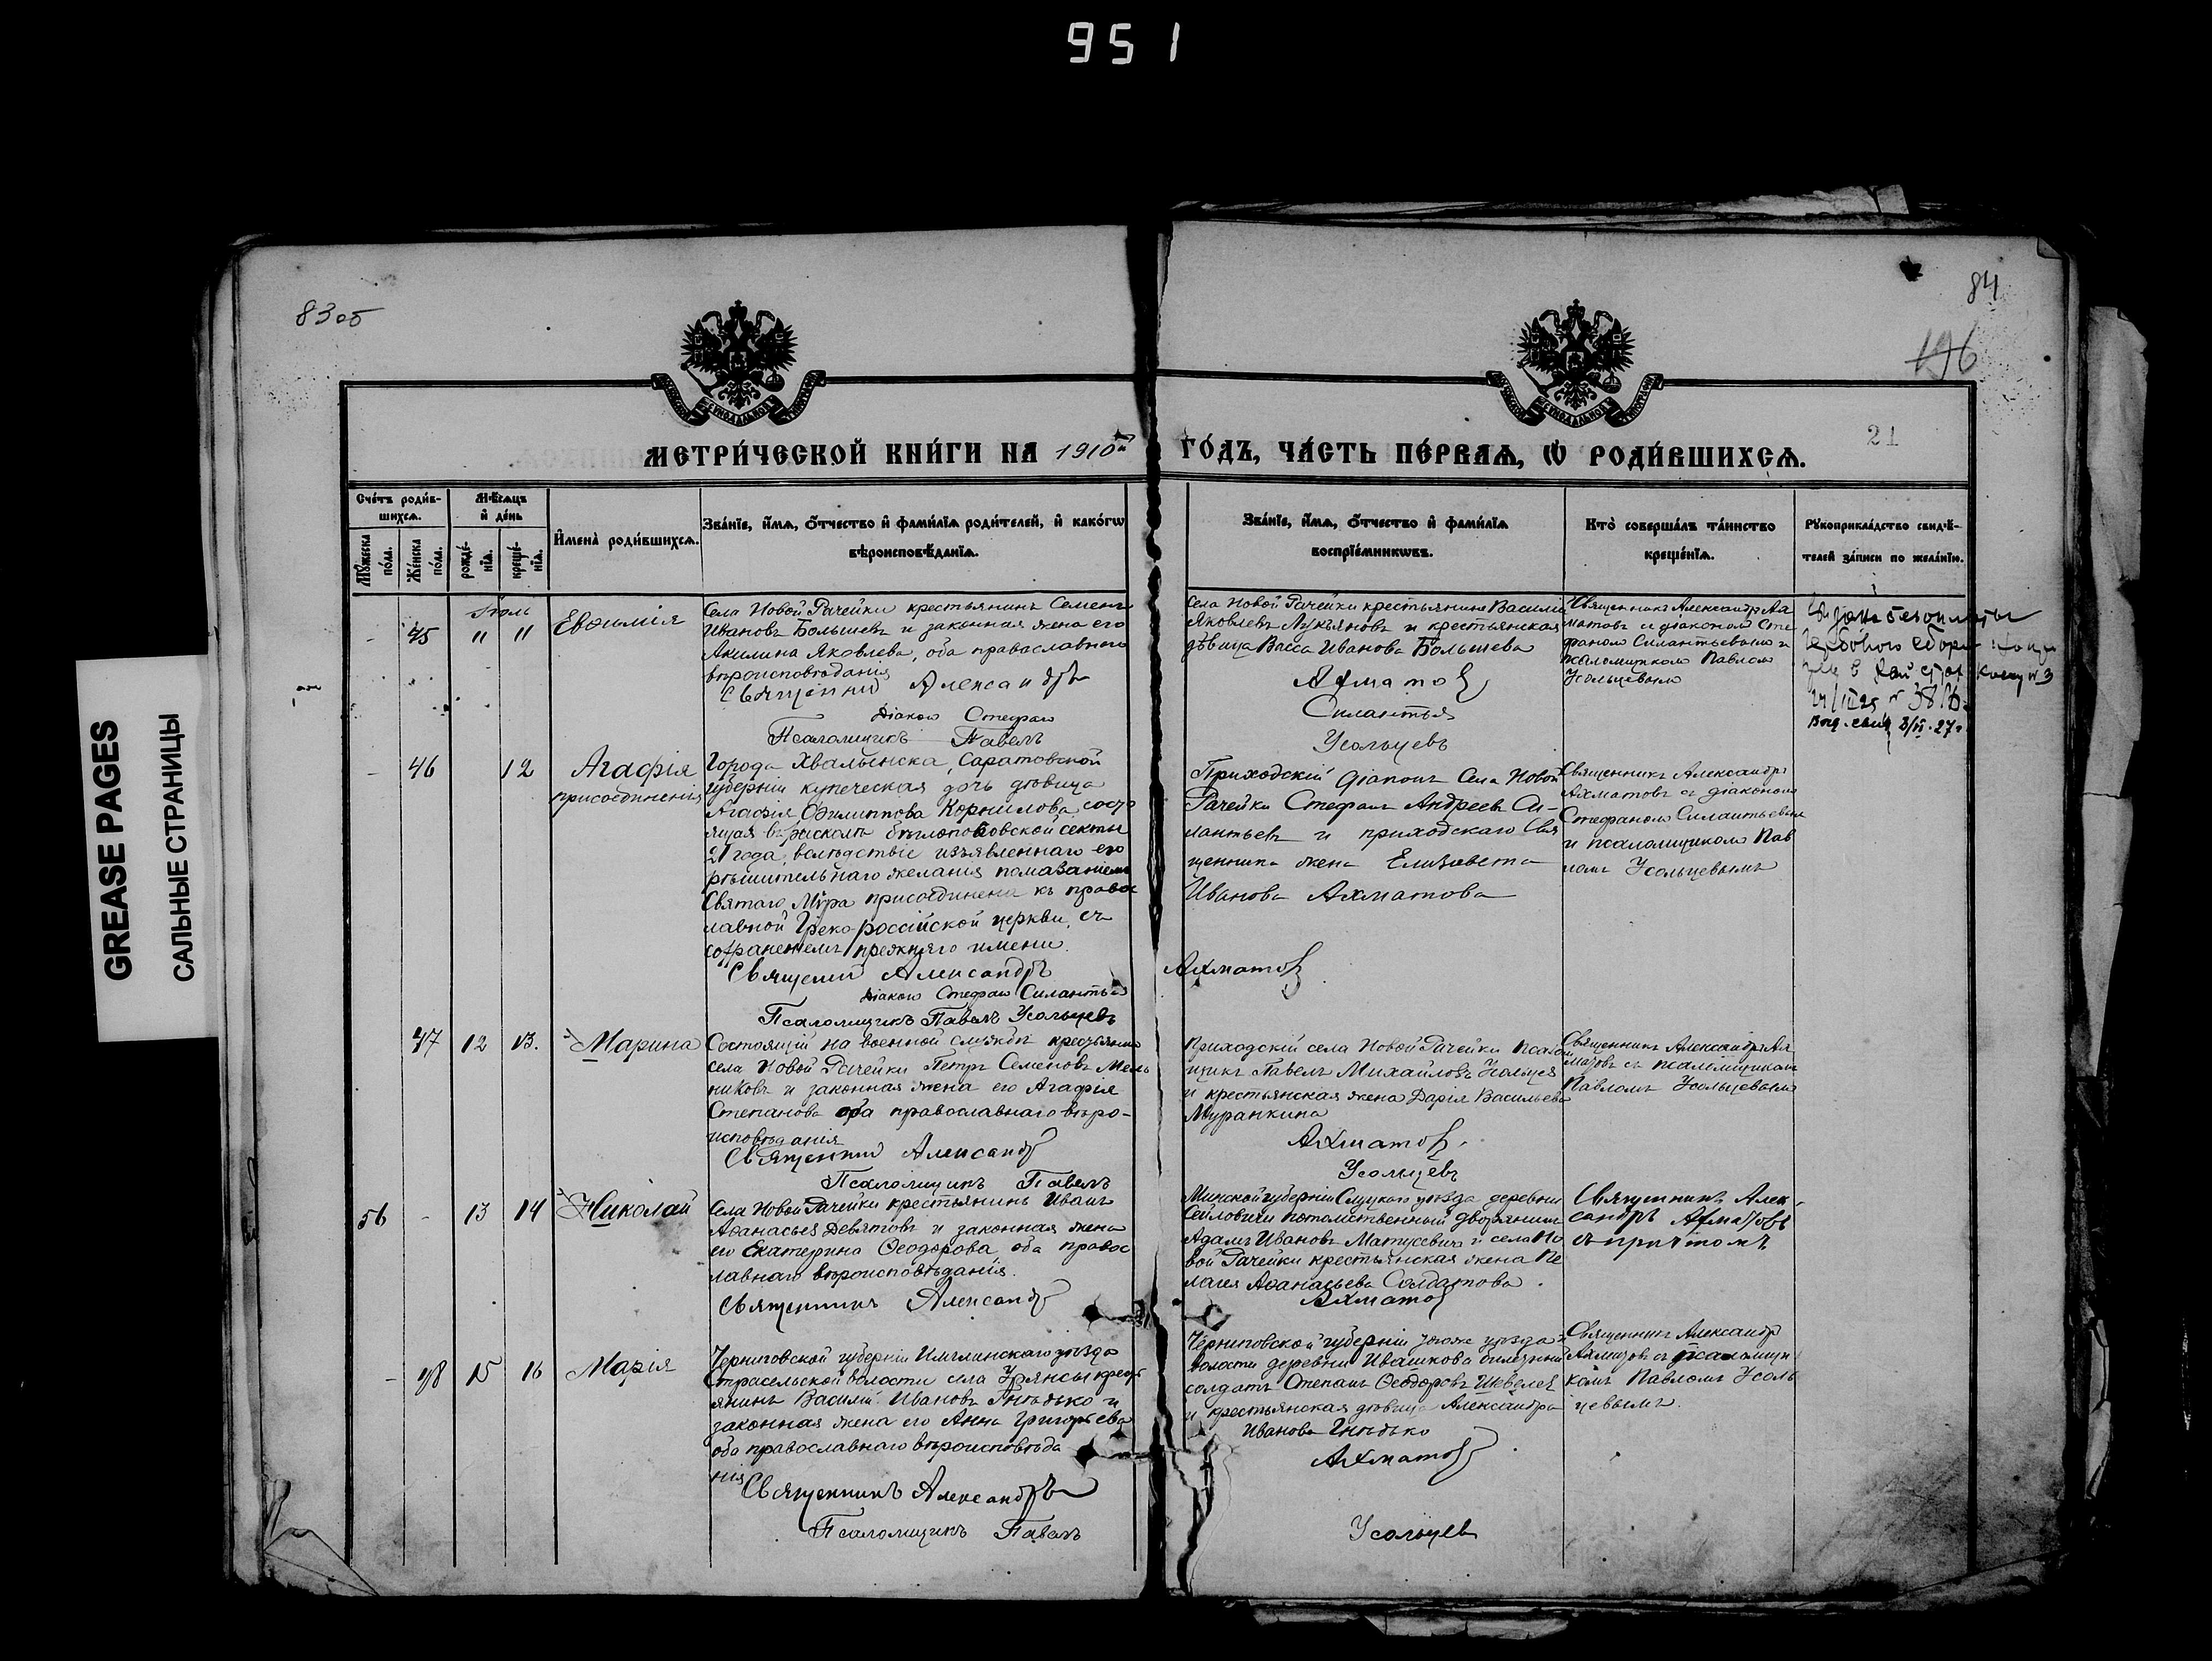 951
GREASE PAGES
САЛЬНЫЕ СТРАНИЦЫ
83об
84
196
21
МЕТРИ́ЧЕСКОЙ КНИ́ГИ НА 1910й ГО́ДЪ, ЧА́СТЬ ПЕ́РВАѦ, Ѡ҆ РОДИ́ВШИХСѦ.
Сче́тъ роди́в-
шихсѧ.
Мѣ́сѧцъ
и҆ де́нь
Мꙋ́жеска по́ла.
Же́нска по́ла.
рожде́-
нїѧ.
креще́-
нїѧ.
И҆мена̀ роди́вшихсѧ.
Зва́нїе, и҆́мѧ, ѻ҆́тчество и҆ фами́лїѧ роди́телей, и҆ како́гѡ
вѣроисповѣ́данїѧ.
Зва́нїе, и҆́мѧ, ѻ҆́тчество и҆ фами́лїѧ
воспрїе́мникѡвъ.
Кто̀ соверша́лъ та́инство
креще́нїѧ.
Рꙋкоприкла́дство свидѣ́-
телей за́писи по жела́нїю.
Іюль
- 45 11 11
Евѳимія
Села Новой Рачейки крестьянинъ Семенъ
Ивановъ Большевъ и законная жена его
Акилина Яковлева, оба православнаго
вѣроисповѣданія
Священникъ Александръ
Діаконъ Стефанъ
Псаломщикъ Павелъ
Села Новой Рачейки крестьянинъ Василій
Яковлевъ Лукьяновъ и крестьянская
дѣвица Васса Иванова Большева
Ахматовъ
Силантьев
Усольцевъ
Священникъ Александръ Ах
матовъ съ діакономъ Сте
фаномъ Силантьевымъ и
псаломщикомъ Павломъ
Усольцевымъ
Выдана без оплаты
гербового сбора
- 46 12
Агафія
присоединенія
Города Хвалынска, Саратовской
губерніи купеческая дочь дѣвица
Агафія Филиппова Корнилова, состо
ящая въ расколѣ бѣлопоповской секты
21 года, вслѣдствіе изъявленнаго ею
рѣшительнаго желанія помазаніемъ
Святаго Мѵра присоединена къ правос
лавной Греко-россійской церкви, съ
сохраненіемъ прежняго имени.
Священникъ Александръ
Діаконъ Стефанъ Силантьев
Псаломщикъ Павелъ Усольцевъ
Приходскій діаконъ Села Новой
Рачейки Стефанъ Андреевъ Си-
лантьевъ и приходскаго Свя
щенника жена Елизавета
Иванова Ахматова
Ахматовъ
Священникъ Александръ
Ахматовъ съ діакономъ
Стефаномъ Силантьевымъ
и псаломщикомъ Пав
ломъ Усольцевымъ
47 12 13.
Марина
Состоящій на военной службѣ крестьянинъ
села Новой Рачейки Петръ Семеновъ Мель
никовъ и законная жена его Агафія
Степанова оба православнаго вѣро-
исповѣданія
Священникъ Александръ
Псаломщикъ Павелъ
Приходскій села Новой Рачейки псалом
щикъ Павелъ Михайловъ Усольцев
и крестьянская жена Дарія Васильева
Муранкина
Ахматовъ.
Усольцевъ
Священникъ Александръ Ах
матовъ съ псаломщикомъ
Павломъ Усольцевымъ
56 - 13 14
Николай
Села Новой Рачейки крестьянинъ Иванъ
Аѳанасьев Девятовъ и законная жена
его Екатерина Ѳеодорова, оба правос
лавнаго вѣроисповѣданія.
Священникъ Александръ
Минской губерніи Слуцкого уѣзда деревни
Сейловичи потомственный дворянинъ
Адамъ Ивановъ Матусевичъ и села Но
вой Рачейки крестьянская жена Пе
лагея Аѳанасьева Солдатова.
Ахматовъ
Священникъ Алек
сандръ Ахматовъ
съ причтомъ
- 48 15 16
Марія
Черниговской губерніи Имглинскаго уѣзда
Старосельской волости села Урянсы крест
янинъ Василій Ивановъ Гнѣдько и
законная жена его Анна Григорьева
оба православнаго вѣроисповѣда
нія
Священникъ Александръ
Псаломщикъ Павелъ
Черниговской губерніи тогоже уѣзда и
волости деревни Ивашкова билетный
солдатъ Степанъ Ѳеодоровъ Шевелев
и крестьянская дѣвица Александра
Иванова Гнѣдько
Ахматовъ
Усольцев
Священникъ Александръ
Ахматовъ съ псаломщи
комъ Павломъ Усоль
цевымъ.